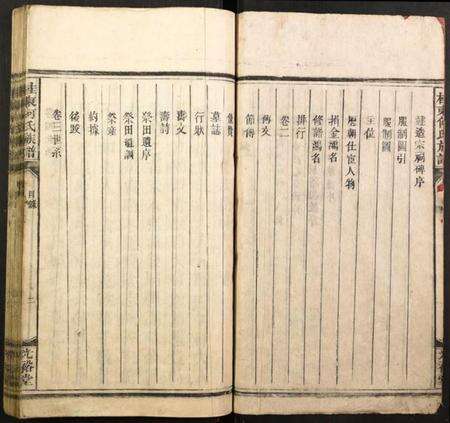 桂東何氏族譜
建造宗祠碑序
服制圖引
服制圖
主位
歷朝仕宦人物
捐金鴻名
修譜鴻名
排行
卷二
傳文
節傳
像贊
墓誌
行狀
壽文
壽詩
祭田遺序
祭田祖調
祭產
約據
後跋
卷三世系
桂東何氏族譜
目錄
光裕堂